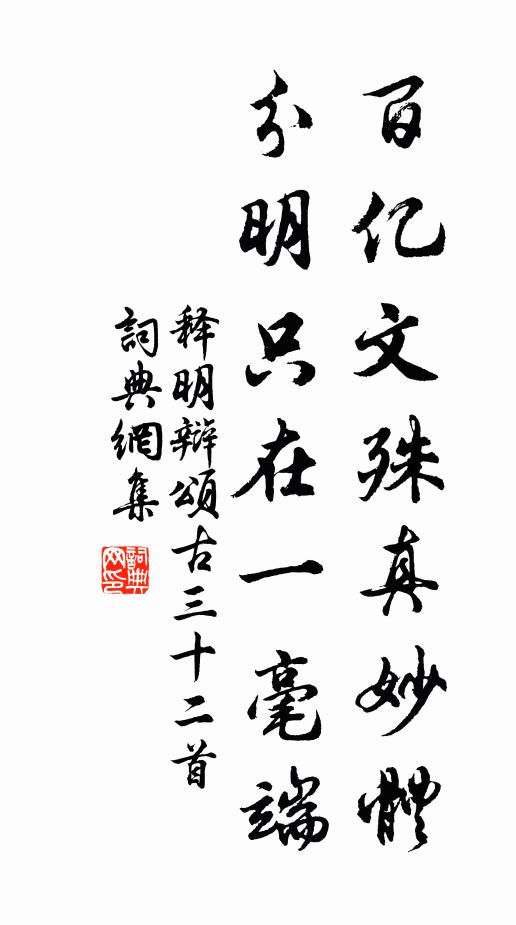 百亿文殊真妙體
分明只在一毫端
释明辯頌古三十二首
詞典網集
詞典网印